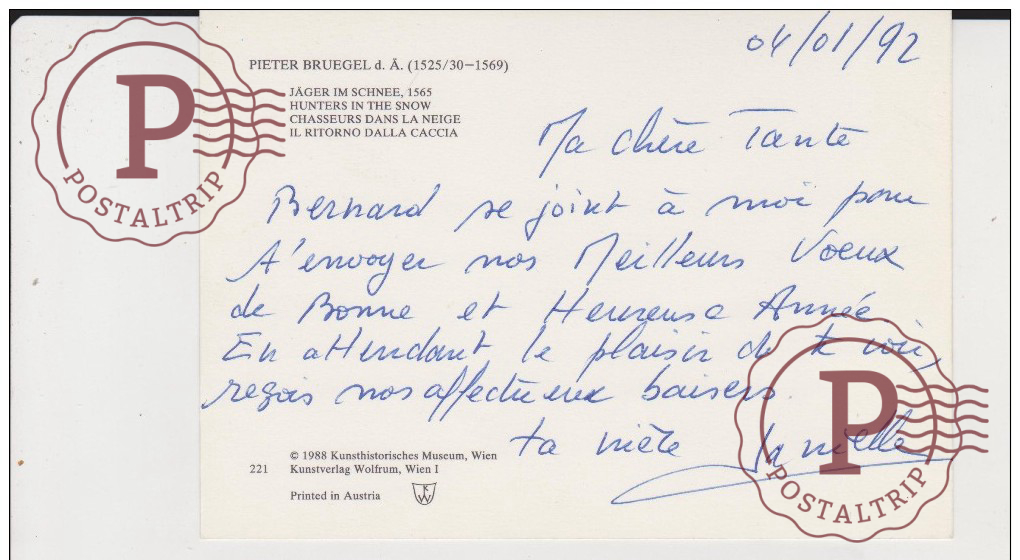 04/01/92
PIETER BRUEGEL d. Ä. (1525/30–1569)
JÄGER IM SCHNEE, 1565
HUNTERS IN THE SNOW
CHASSEURS DANS LA NEIGE
IL RITORNO DALLA CACCIA
P
POSTALTRIP
Ma chère Tante
Bernard se joint à moi pour
t'envoyer nos Meilleurs Voeux
de Bonne et Heureuse Année
En attendant le plaisir de te voir,
reçois nos affectueux baisers.
ta nièce
© 1988 Kunsthistorisches Museum, Wien
221 Kunstverlag Wolfrum, Wien I
Printed in Austria
KW
P
POSTALTRIP